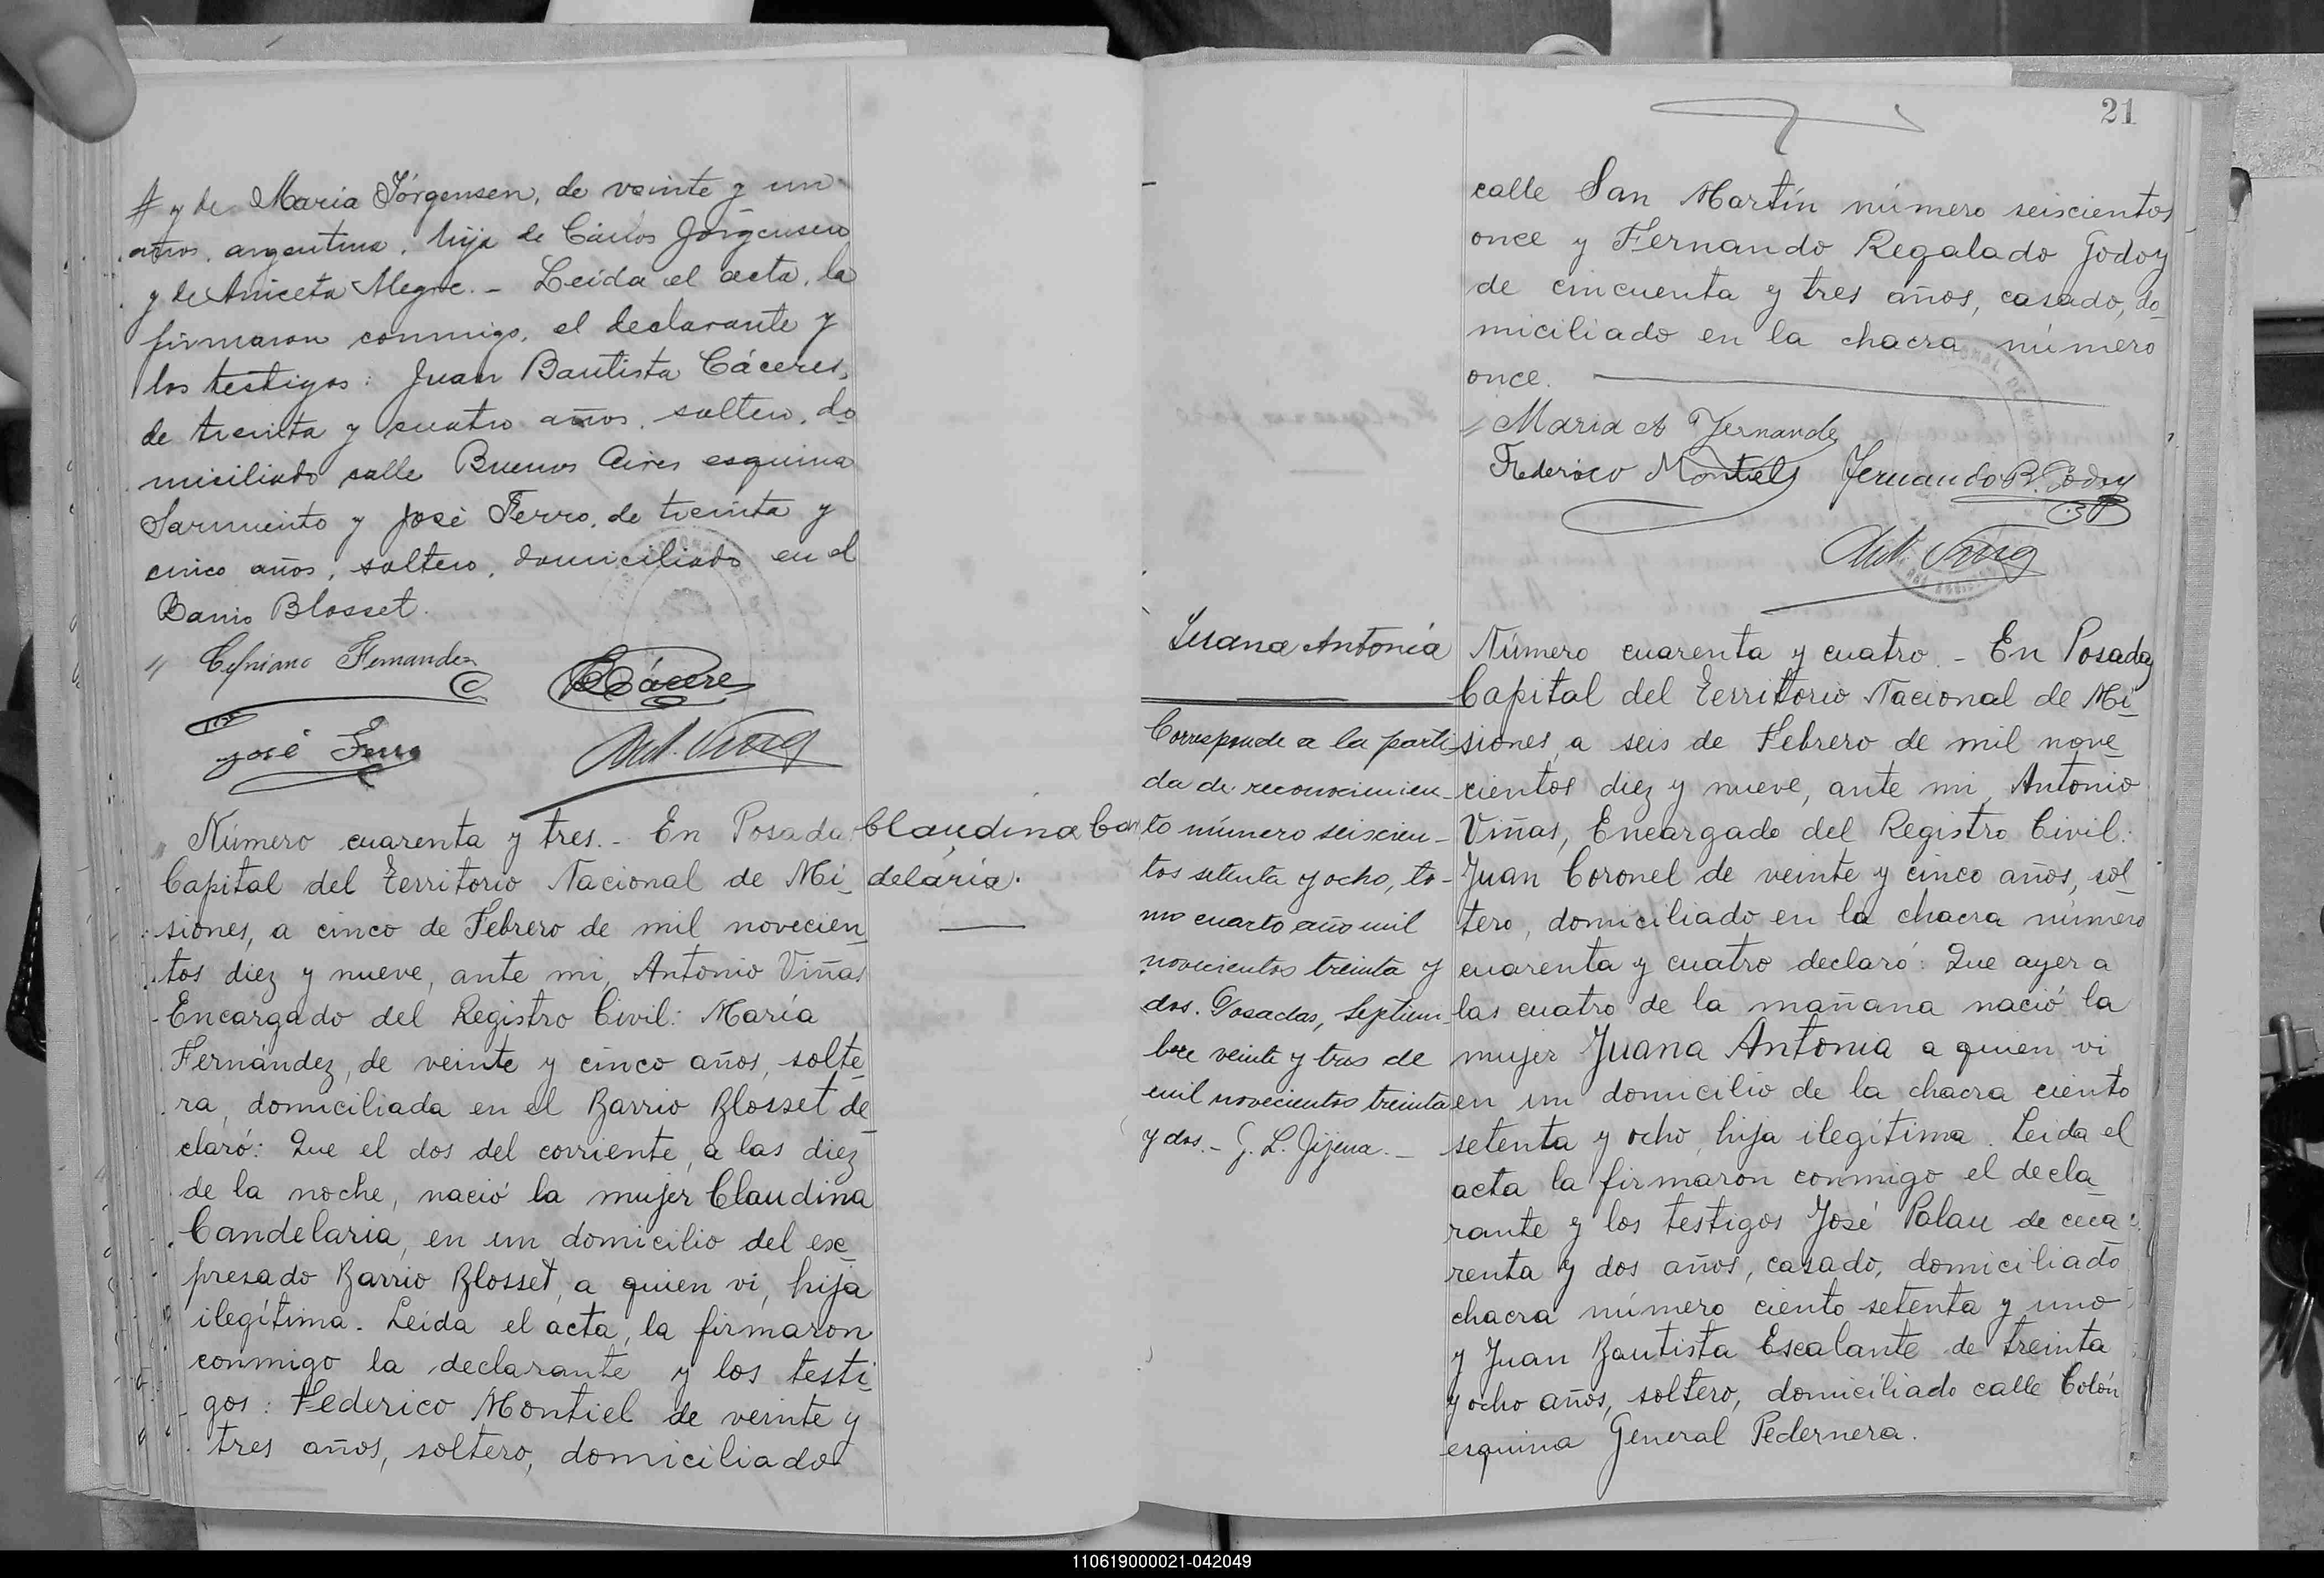 # y de María Jórgensen, de veinte y un
años, argentina, hija de Cárlos Jörgensen
y de Aniceta Alegre. - Leída el acta, la
firmaron conmigo, el declarante y
los testigos: Juan Bautista Cáceres,
de treinta y cuatro años, soltero, do
miciliado calle Buenos Aires esquina
Sarmiento y José Ferro, de treinta y
cinco años, soltero, domiciliado en el
Barrio Blosset.
" Cipriano Fernandez
Cáceres
José Ferro
Ant. Viñas
Claudina Can
delaria.
Número cuarenta y tres. - En Posadas
Capital del Territorio Nacional de Mi_
siones, a cinco de Febrero de mil novecien_
tos diez y nueve, ante mi, Antonio Viñas
Encargado del Registro Civil: María
Fernández, de veinte y cinco años, solte_
ra, domiciliada en el Barrio Blosset de_
claró: Que el dos del corriente, a las diez
de la noche, nació la mujer Claudina
Candelaria, en un domicilio del ex_
presado Barrio Blosset, a quien vi, hija
ilegítima. Leida el acta, la firmaron
conmigo la declarante y los testi_
gos: Federico Montiel de veinte y
tres años, soltero, domiciliado
21
calle San Martín número seiscientos
once y Fernando Regalado Godoy
de cincuenta y tres años, casado, do_
miciliado en la chacra número
once.
" Maria A Fernandez
Federico Montiel Fernando R. Godoy
Ant. Viñas
Juana Antonia
Corresponde a la parti
da de reconocimien_
to número seiscien_
tos setenta y ocho, to-
mo cuarto año mil
novecientos treinta y
dos. Posadas, Septiem_
bre veinte y tres de
mil novecientos treinta
y dos. - G. L. Jijena. -
Número cuarenta y cuatro. - En Posadas
Capital del Territorio Nacional de Mi_
siones, a seis de Febrero de mil nove_
cientos diez y nueve, ante mi, Antonio
Viñas, Encargado del Registro Civil:
Juan Coronel de veinte y cinco años, sol_
tero, domiciliado en la chacra número
cuarenta y cuatro declaró: Que ayer a
las cuatro de la mañana nació la
mujer Juana Antonia a quien vi
en un domicilio de la chacra ciento
setenta y ocho, hija ilegítima. Leida el
acta la firmaron conmigo el decla_
rante y los testigos José Palau de cua
renta y dos años, casado, domiciliado
chacra número ciento setenta y uno
y Juan Bautista Escalante de treinta
y ocho años, soltero, domiciliado calle Colón
esquina General Pedernera.
110619000021-042049